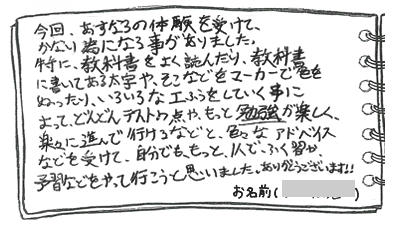 今回、あすなろの体験を受けて、
かなり為になる事がありました。
特に、教科書をよく読んだり、教科書
に書いてある太字や、そこなどをマーカーで色を
ぬったり、いろいろな工ふうをしていく事に
よって、どんどんテストの点や、もっと勉強が楽しく、
楽々に進んで行けるなどと、色々なアドバイス
などを受けて、自分でも、もっと、1人で、ふく習や
予習などをやって行こうと思いました。ありがとうございます!!
お名前( )